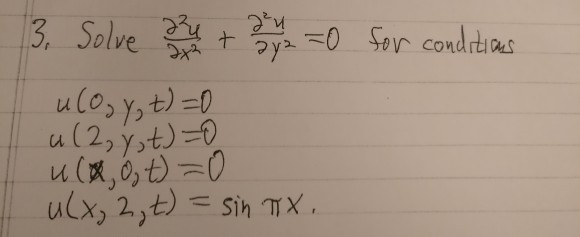 3. Solve ∂²u/∂x² + ∂²u/∂y² = 0 for conditions
u(0, y, t) = 0
u(2, y, t) = 0
u(x, 0, t) = 0
u(x, 2, t) = sin πx.